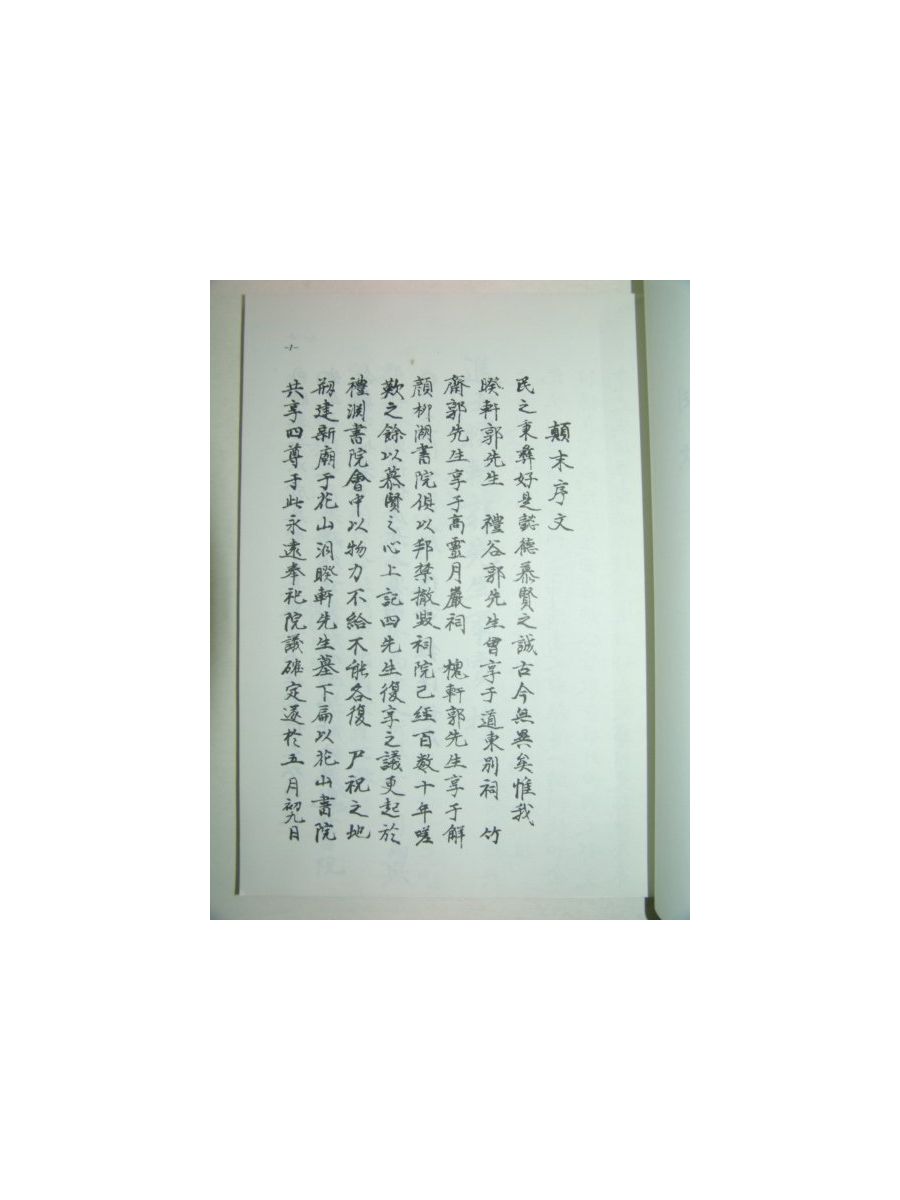 顛末序文
民之秉彝好是懿德慕賢之誠古今無異矣惟我
暌軒郭先生 禮谷郭先生曾享于道東別祠 竹
齋郭先生享于高靈月巖祠 槐軒郭先生享于解
顔柳湖書院俱以邦禁撤毀祠院已經百數十年嗟
歎之餘以慕賢之心上記四先生復享之議更起於
禮淵書院會中以物力不給不能各復 尸祝之地
刱建新廟于花山洞暌軒先生墓下扁以花山書院
共享四尊于此永遠奉祀院議確定遂於五月初九日
-1-